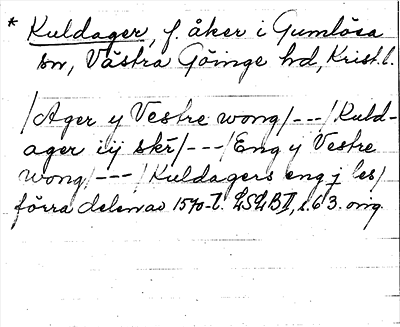 * Kuldager, f. åker i Gumlösa
sn, Västra Göinge hd, Krist. l.
/Ager y Vestre wong/---/Kuld-
ager iij skr/---/Eng y Vestre
wong/---/Kuldagers eng j les/
förra delen av 1570-t. LSLB II, s. 63. orig.